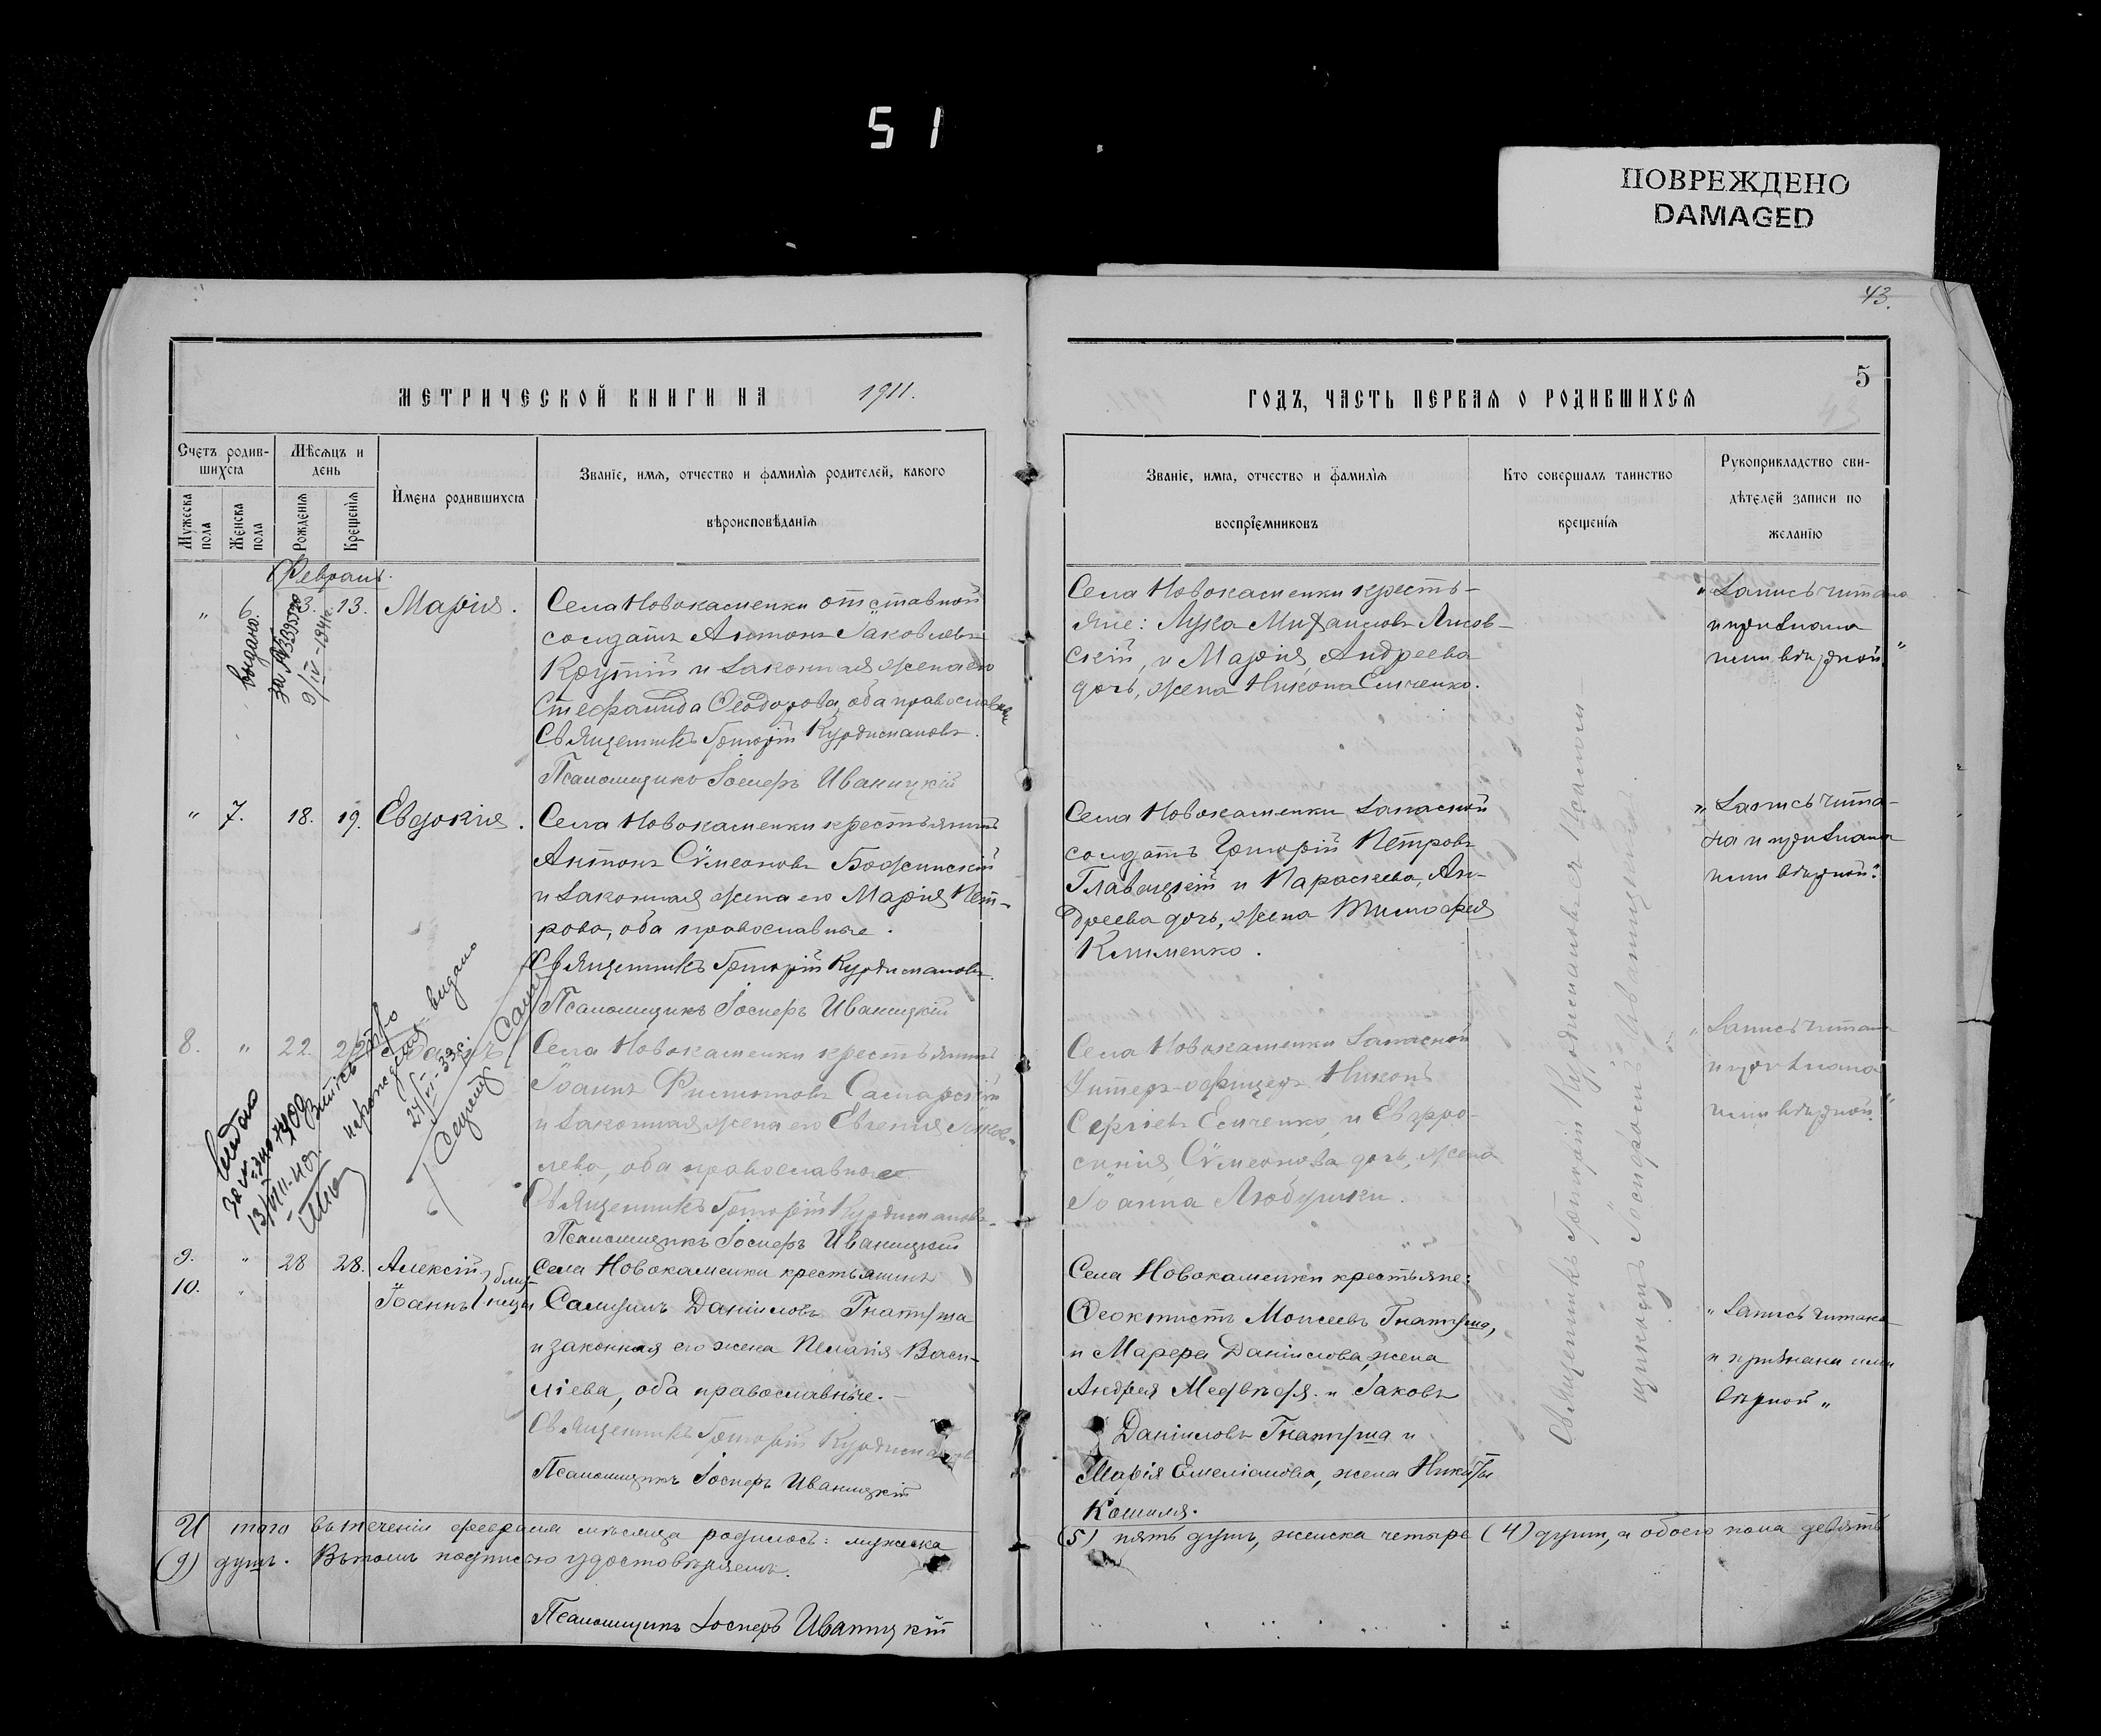 51
ПОВРЕЖДЕНО
DAMAGED
43.
5
МЕТРИЧЕСКОЙ КНИГИ НА 1911.
ГОДЪ, ЧАСТЬ ПЕРВАЯ О РОДИВШИХСЯ
Счетъ родив-
шихся
Мѣсяцъ и
день
Имена родившихся
Званіе, имя, отчество и фамилія родителей, какого
вѣроисповѣданія
Мужеска
пола
Женска
пола
Рожденія
Крещенія
Званіе, имя, отчество и фамилія
воспріемниковъ
Кто совершалъ таинство
крещенія
Рукоприкладство сви-
дѣтелей записи по
желанію
Февраль.
" 6. 13. 13. Марія.
выдано
9/IV-1941г.
Села Новокаменки отставной
солдатъ Антонъ Іаковлевъ
Крутій и законная жена его
Стефанида Ѳеодорова, оба православные
Священникъ Григорій Курдимановъ.
Псаломщикъ Іосифъ Иваницкій
Села Новокаменки кресть-
яне: Лука Михаиловъ Лисов-
скій, и Марія Андреева
дочь, жена Никона Емченко.
"Запись читана
и признана
нами вѣрной"
" 7. 18. 19. Евдокія.
Села Новокаменки крестьянинъ
Антонъ Сѵмеоновъ
и законная жена его Марія Пет-
рова, оба православные.
Священникъ Григорій Курдимановъ.
Псаломщикъ Іосифъ Иваницкій
Села Новокаменки запасной
солдатъ Григорій Петровъ
и Параскева, Ан-
дреева дочь, жена Тимофея
Клименко.
"Запись чита-
на и признана
нами вѣрной."
8. " 22. 22.
видано
Села Новокаменки крестьянинъ
Іоаннъ Филиповъ Самарскій
и законная жена его Евгенія Іаков-
лева, оба православные
Священникъ Григорій Курдимановъ.
Псаломщикъ Іосифъ Иваницкій
Села Новокаменки запасной
Унтеръ-офицеръ Никонъ
Сергіевъ Емченко, и Евфро-
синія Сѵмеонова дочь, жена
Іоанна Любушки.
"Запись читана
и признана
нами вѣрной"
9. " 28 28. Алексій } близ-
10. " Іоаннъ } нецы
Села Новокаменки крестьянинъ
Самуилъ Даніиловъ Гнатуша
и законная его жена Пелагія Васи-
ліева, оба православные.-
Священникъ Григорій Курдимановъ
Псаломщикъ Іосифъ Иваницкій
Села Новокаменки крестьяне:
Ѳеоктистъ Моисеевъ Гнатуша,
и Марфа Даніилова, жена
Андрея Медвѣдя. и Іаковъ
Даніиловъ Гнатуша и
Марія Емеліанова, жена Никиты
Кошиля.
"Запись читана
и признана нами
вѣрной"
Священникъ Григорій Курдимановъ и Псалом-
щикомъ Іосифомъ Иваницкимъ.
И того въ теченіи февраля мѣсяца родилось: мужеска
(5) пять душъ, женска четыре (4) душъ, а обоего пола девять
(9) душъ. Въ томъ подписью удостовѣряемъ.
Псаломщикъ Іосифъ Иваницкій